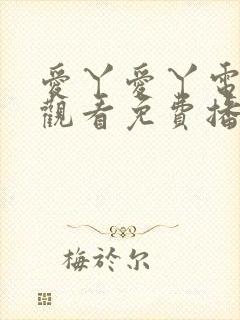 愛丫愛丫電
觀看免費播
梅於尔